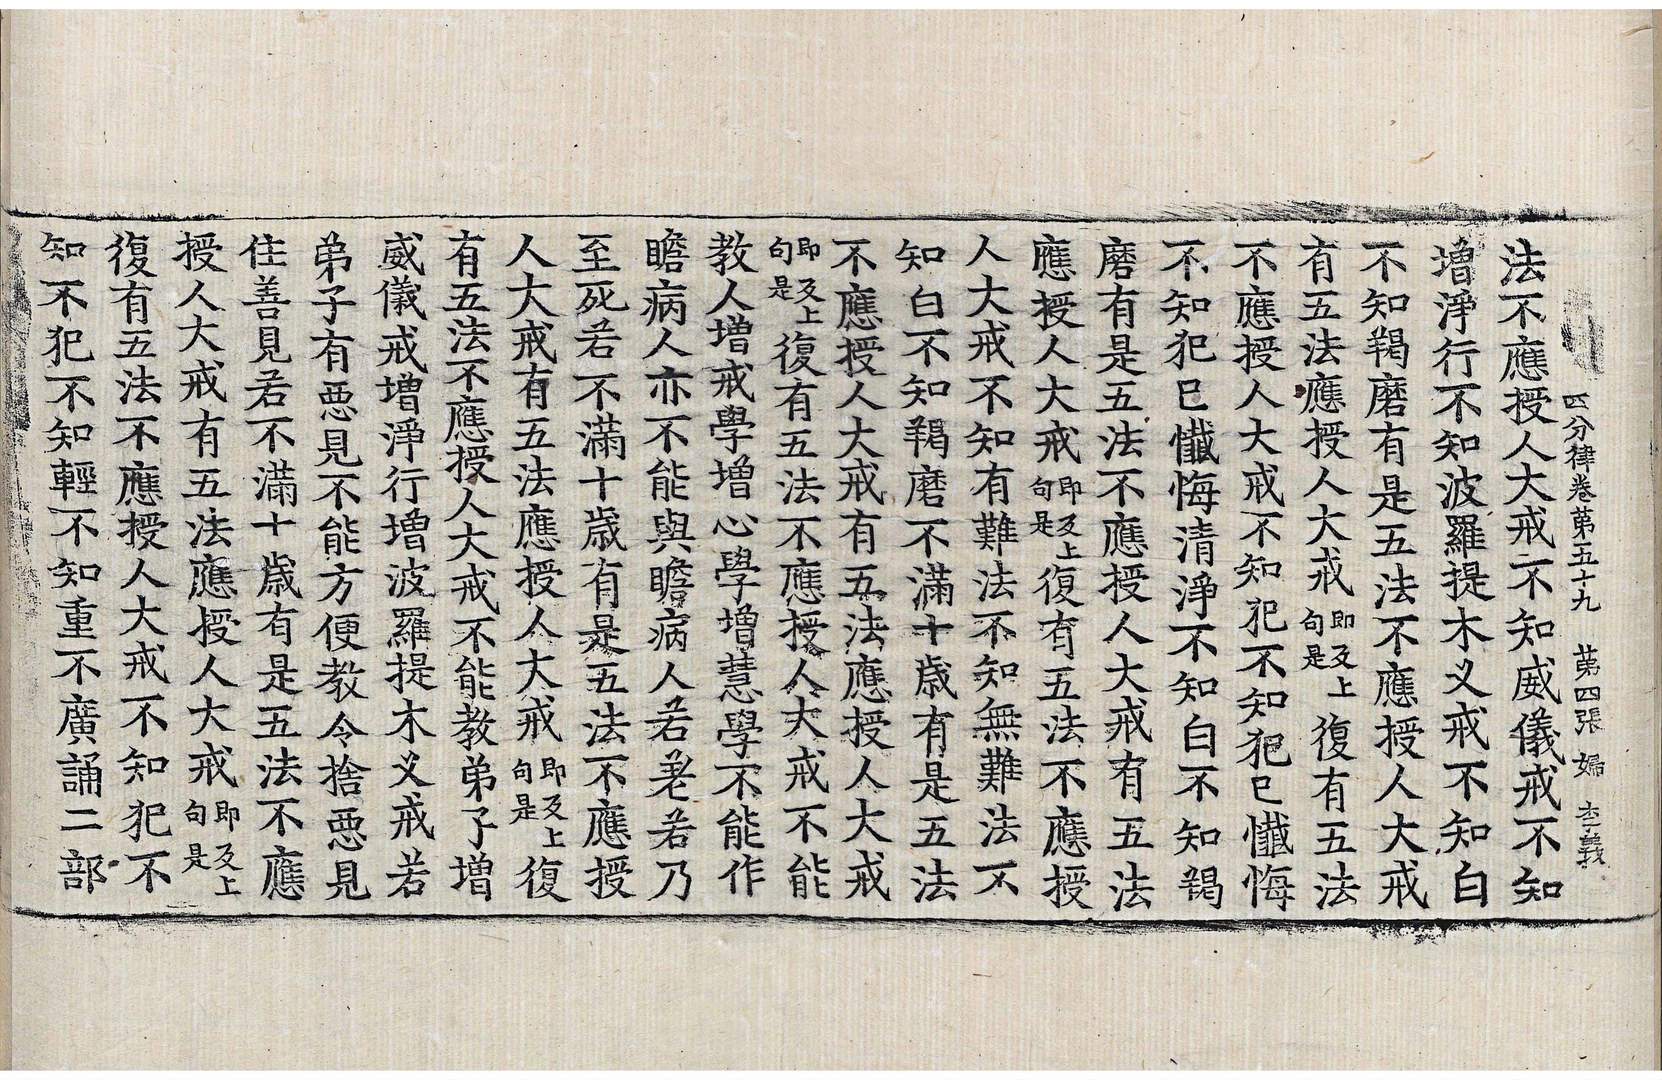 四分律卷第五十九　第四張　婦　李義
法不應授人大戒不知威儀戒不知
增淨行不知波羅提木义戒不知白
不知羯磨有是五法不應授人大戒
有五法應授人大戒即反上句是復有五法
不應授人大戒不知犯不知犯已懺悔
不知犯已懺悔清淨不知白不知羯
磨有是五法不應授人大戒有五法
應授人大戒即反上句是復有五法不應授
人大戒不知有難法不知無難法不
知白不知羯磨不滿十歲有是五法
不應授人大戒有五法應授人大戒
即反上句是復有五法不應授人大戒不能
教人增戒學增心學增慧學不能作
瞻病人亦不能與瞻病人若老若乃
至死若不滿十歲有是五法不應授
人大戒有五法應授人大戒即反上句是復
有五法不應授人大戒不能教弟子增
威儀戒增淨行增波羅提木义戒若
弟子有惡見不能方便教令捨惡見
住善見若不滿十歲有是五法不應
授人大戒有五法應授人大戒即反上句是
復有五法不應授人大戒不知犯不
知不犯不知輕不知重不廣誦二部